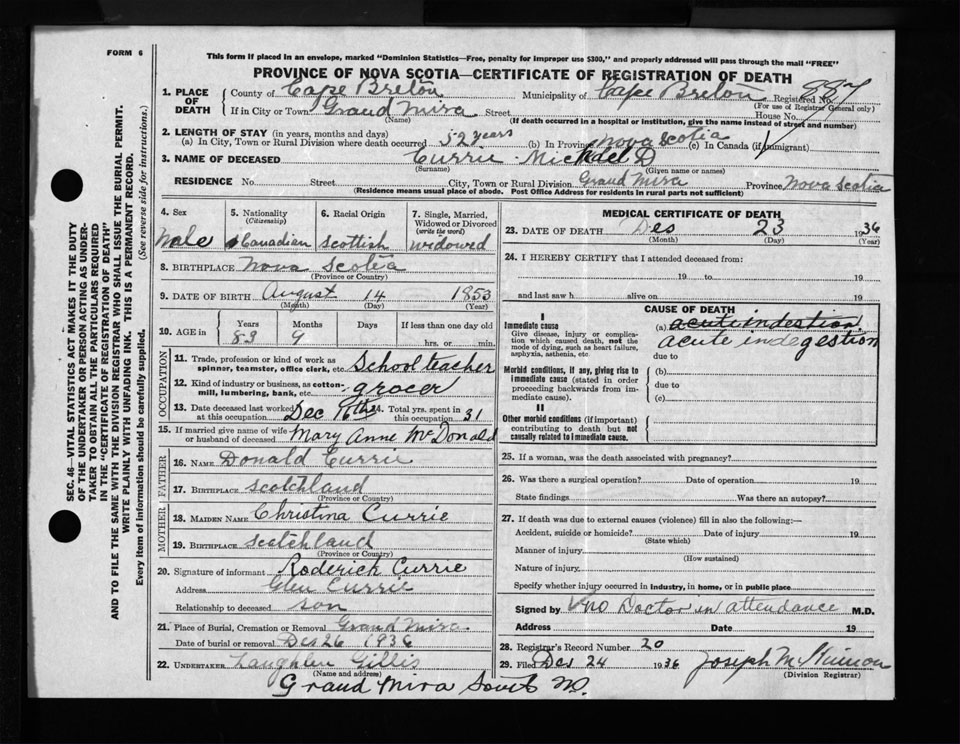 FORM 6
This form if placed in an envelope, marked "Dominion Statistics—Free, penalty for improper use $300," and properly addressed will pass through the mail "FREE"
PROVINCE OF NOVA SCOTIA—CERTIFICATE OF REGISTRATION OF DEATH
1. PLACE OF DEATH County of Cape Breton Municipality of Cape Breton Registered No. 887
(For use of Registrar General only)
If in City or Town Grand Mira Street House No.
(Name) (If death occurred in a hospital or institution, give the name instead of street and number)
2. LENGTH OF STAY (in years, months and days)
(a) In City, Town or Rural Division where death occurred 52 years (b) In Province Nova Scotia (c) In Canada (if immigrant)
3. NAME OF DECEASED Currie Michael D
(Surname) (Given name or names)
RESIDENCE No. Street City, Town or Rural Division Grand Mira Province Nova Scotia
(Residence means usual place of abode. Post Office Address for residents in rural parts not sufficient)
4. Sex Male
5. Nationality (Citizenship) Canadian
6. Racial Origin Scottish
7. Single, Married, Widowed or Divorced (write the word) widowed
8. BIRTHPLACE Nova Scotia
(Province or Country)
9. DATE OF BIRTH August 14 1853
(Month) (Day) (Year)
10. AGE in Years Months Days If less than one day old
83 9 hrs. or min.
OCCUPATION
11. Trade, profession or kind of work as spinner, teamster, office clerk, etc. School teacher
12. Kind of industry or business, as cotton-mill, lumbering, bank, etc. grocer
13. Date deceased last worked at this occupation Dec 16th 14. Total yrs. spent in this occupation 31
15. If married give name of wife or husband of deceased Mary Anne McDonald
FATHER
16. NAME Donald Currie
17. BIRTHPLACE Scotchland
(Province or Country)
MOTHER
18. MAIDEN NAME Christina Currie
19. BIRTHPLACE Scotchland
(Province or Country)
20. Signature of informant Roderick Currie
Address Glen Currie
Relationship to deceased son
21. Place of Burial, Cremation or Removal Grand Mira
Date of burial or removal Des 26 1936
22. UNDERTAKER Laughlen Gillis
(Name and address)
Grand Mira South
MEDICAL CERTIFICATE OF DEATH
23. DATE OF DEATH Des 23 1936
(Month) (Day) (Year)
24. I HEREBY CERTIFY that I attended deceased from:
19 to 19
and last saw h alive on 19
CAUSE OF DEATH
I
Immediate cause
Give disease, injury or complication which caused death, not the mode of dying, such as heart failure, asphyxia, asthenia, etc.
(a) acute indestion
acute indegestion
due to
Morbid conditions, if any, giving rise to immediate cause (stated in order proceeding backwards from immediate cause).
(b)
due to
(c)
II
Other morbid conditions (if important) contributing to death but not causally related to immediate cause.
25. If a woman, was the death associated with pregnancy?
26. Was there a surgical operation? Date of operation 19
State findings Was there an autopsy?
27. If death was due to external causes (violence) fill in also the following:—
Accident, suicide or homicide? Date of injury 19
(State which)
Manner of injury
(How sustained)
Nature of injury
Specify whether injury occurred in industry, in home, or in public place
Signed by no Doctor in attendance M.D.
Address Date 19
28. Registrar's Record Number 20
29. Filed Des 24 1936 Joseph
(Division Registrar)
SEC. 46—VITAL STATISTICS ACT MAKES IT THE DUTY
OF THE UNDERTAKER OR PERSON ACTING AS UNDERTAKER TO OBTAIN ALL THE PARTICULARS REQUIRED
IN THE "CERTIFICATE OF REGISTRATION OF DEATH"
AND TO FILE THE SAME WITH THE DIVISION REGISTRAR WHO SHALL ISSUE THE BURIAL PERMIT.
WRITE PLAINLY WITH UNFADING INK. THIS IS A PERMANENT RECORD.
Every item of information should be carefully supplied. (See reverse side for instructions.)